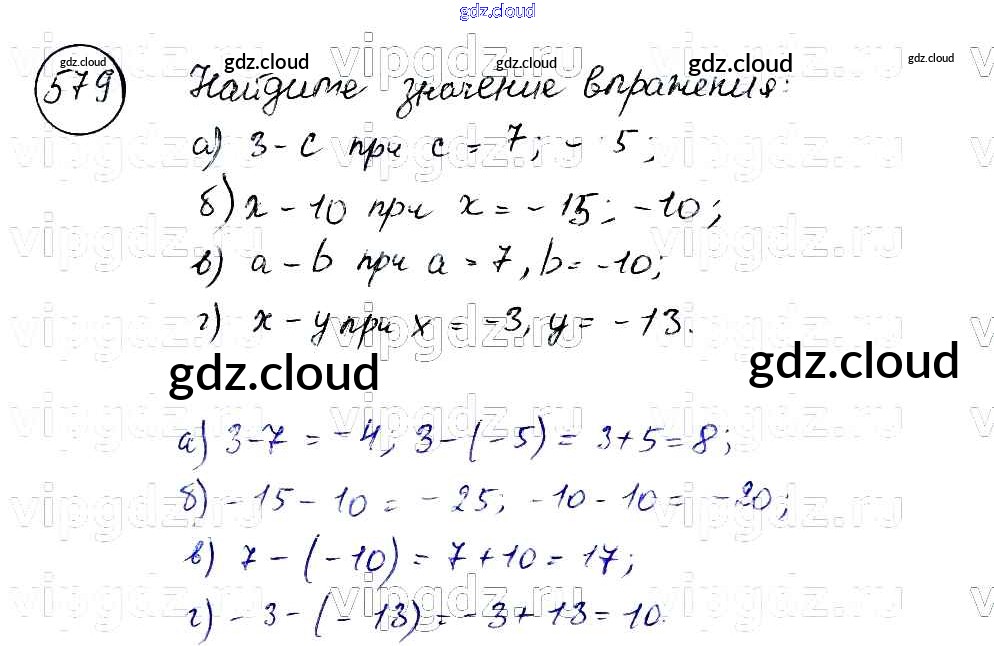 gdz.cloud
579 Найдите значение выражения:
а) 3 - c при c = 7; - 5;
б) x - 10 при x = - 15; -10;
в) a - b при a = 7, b = -10;
г) x - y при x = -3, y = -13.
gdz.cloud gdz.cloud
а) 3-7 = -4; 3-(-5) = 3+5=8;
б) -15-10 = -25; -10-10 = -20;
в) 7-(-10) = 7+10 = 17;
г) -3-(-13) = -3+13 = 10.